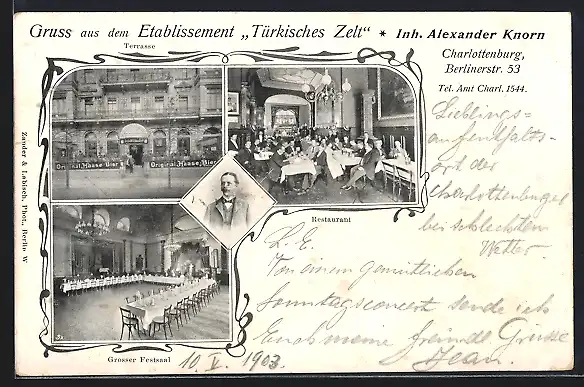 Gruss aus dem Etablissement „Türkisches Zelt“ * Inh. Alexander Knorn
Charlottenburg,
Berlinerstr. 53
Tel. Amt Charl. 1544.
Terrasse
Original Haase Bier
Original Haase Bier
Restaurant
Grosser Festsaal
Zander & Labisch, Phot., Berlin W
Lieblings-
aufenthalts-
ort der
Charlottenburger
bei schlechtem
Wetter.
L. E.
Von einem gemütlichen
Sonntagsconcert sende ich
Euch meine freundl. Grüsse
Jean.
10. V. 1903